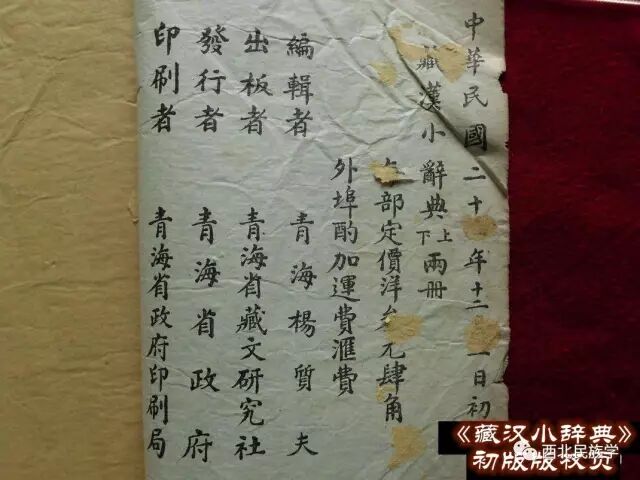 中華民國二十 年十二 一日初
藏漢小辭典上下兩冊
部定價洋 元肆角
外埠酌加運費滙費
編輯者 青海楊質夫
出板者 青海省藏文研究社
發行者 青海省政府
印刷者 青海省政府印刷局
《藏汉小辞典》
初版版权页
西北民族学